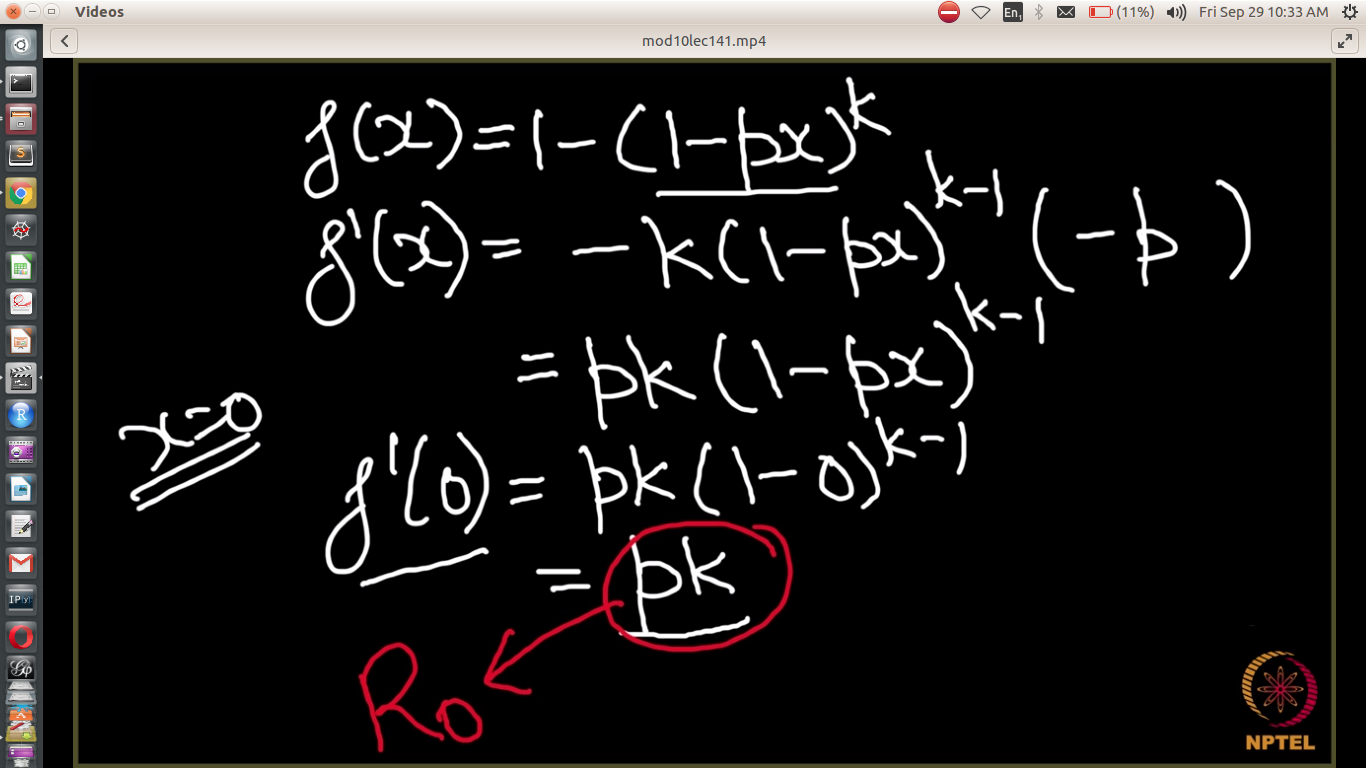 Videos
En1
(11%)
Fri Sep 29 10:33 AM
mod10lec141.mp4
f(x) = 1 - (1 - px)^k
f'(x) = - k (1 - px)^{k-1} (-p )
= pk (1 - px)^{k-1}
x=0
f'(0) = pk (1 - 0)^{k-1}
= pk
R0
NPTEL